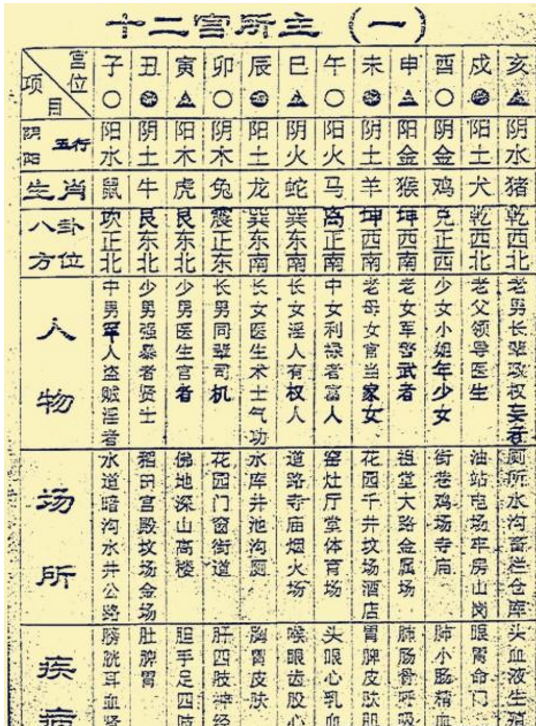 十二宫所主（一）
宫位 项目 子 丑 寅 卯 辰 巳 午 未 申 酉 戌 亥
阴阳五行 阳水 阴土 阳木 阴木 阳土 阴火 阳火 阴土 阳金 阴金 阳土 阴水
生肖 鼠 牛 虎 兔 龙 蛇 马 羊 猴 鸡 犬 猪
八卦方位 坎正北 艮东北 艮东北 震正东 巽东南 巽东南 离正南 坤西南 坤西南 兑正西 乾西北 乾西北
人物
中男军人盗贼淫者
少男强暴者贤士
少男医生官者
长男同辈司机
长女医生术士气功
长女淫人有权人
中女利禄者富人
老母女官当家女
老女军警武者
少女小姐年少女
老父领导医生
老男长辈政权妄者
场所
水道暗沟水井公路
稻田宫殿坟场金场
佛地深山高楼
花园门窗街道
水库井池沟厕
道路寺庙烟火场
窑灶厅堂体育场
花园千井坟场酒店
祖堂大路金属场
街巷鸡场寺庙
油站电场牢房山岗
厕所水沟畜栏仓库
疾病
膀胱耳血肾
肚脾胃
胆手足四肢
肝四肢神经
胸胃皮肤
喉眼齿股心
头眼心乳血
胃脾皮肤
肺肠骨呼吸
肺小肠精血
眼胃命门
头血液生